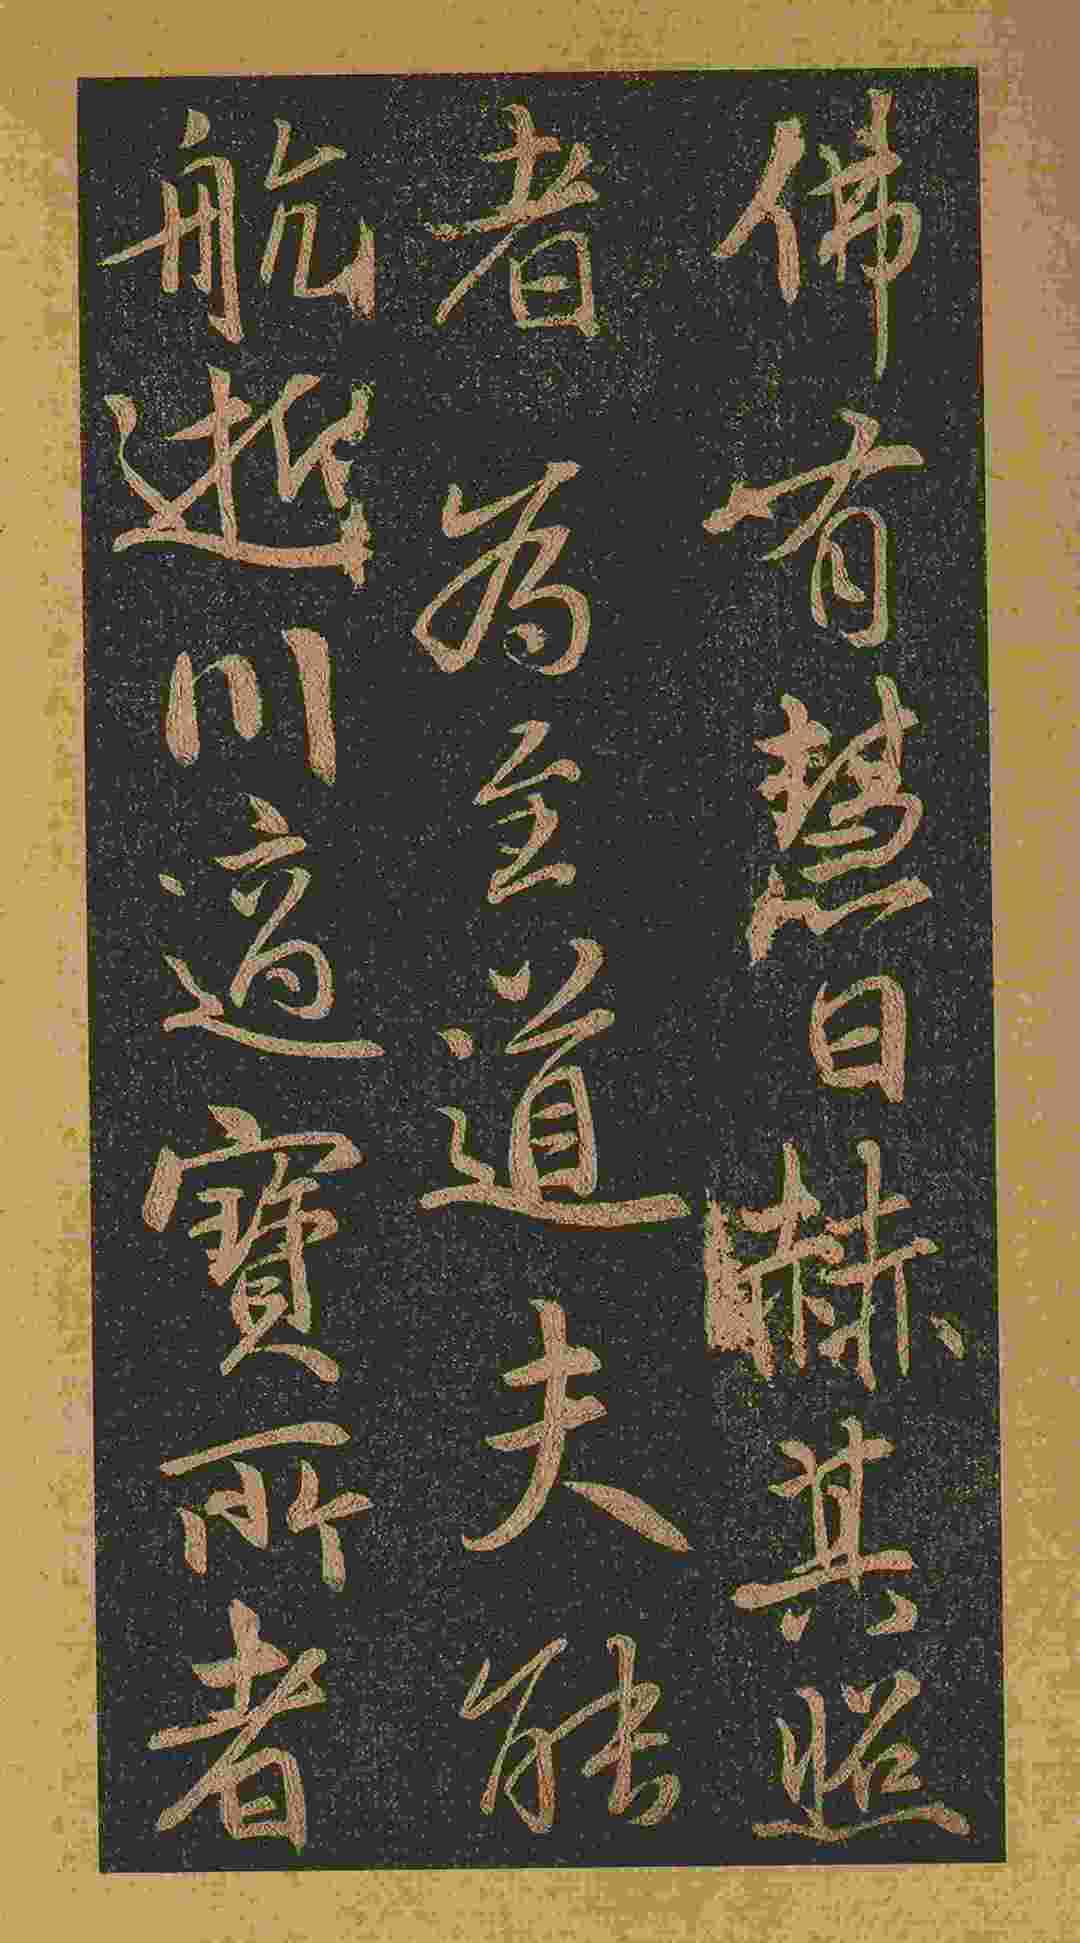 佛有慧日赫其照
者為至道夫能
航逝川適寶所者